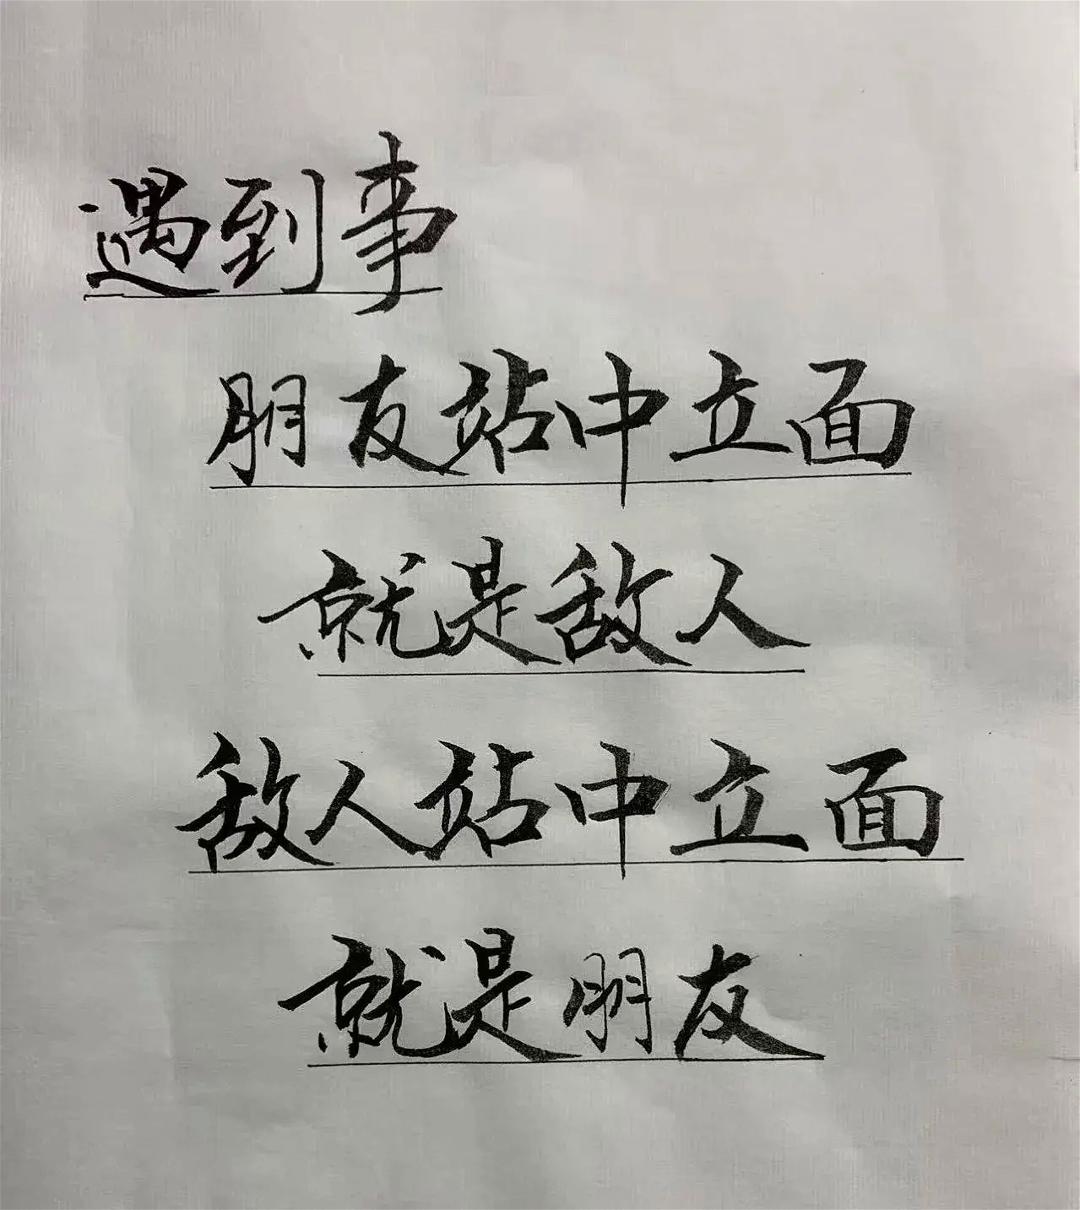 遇到事
朋友站中立面
就是敌人
敌人站中立面
就是朋友